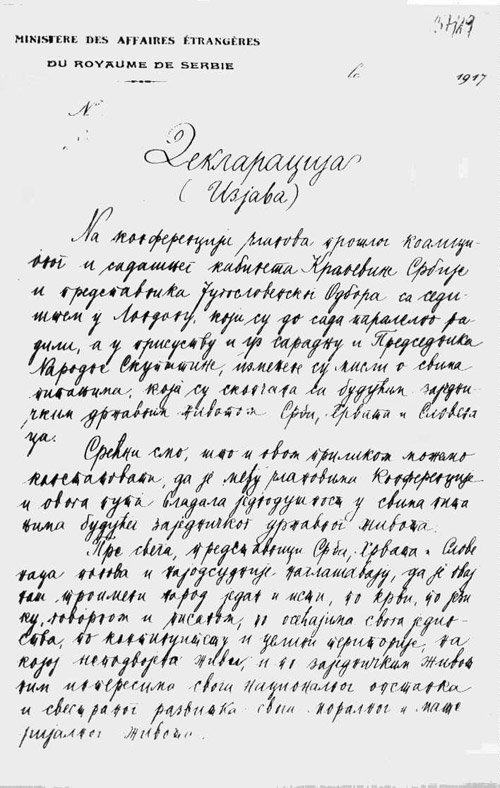 MINISTÈRE DES AFFAIRES ÉTRANGÈRES
DU ROYAUME DE SERBIE
le 1917
N°
Декларација
(Изјава)
На конференцији чланова прошлог коалици-
оног и садашњег кабинета Краљевине Србије
и представника Југословенског Одбора са седи-
штем у Лондону, који су до сада паралелно ра-
дили, а у присуству и уз сарадњу и Председника
Народне Скупштине, измењене су мисли о свима
питањима, која су скопчана са будућим заједни-
чким државним животом Срба, Хрвата и Словена-
ца.
Срећни смо, што и овом приликом можемо
констатовати, да је међу члановима Конференције
и овога пута владала једнодушност у свима пита-
њима будућег заједничког државног живота.
Пре свега, представници Срба, Хрвата и Слове-
наца понова и најодсудније наглашавају, да је овај
наш троимени народ један и исти, по крви, по јези-
ку, говорном и писаном, по осећајима свога једин-
ства, по континуитету и целини територије, на
којој неподвојено живи, и по заједничким живот-
ним интересима свога националног опстанка
и свестраног развитка свога моралног и мате-
ријалног живота.